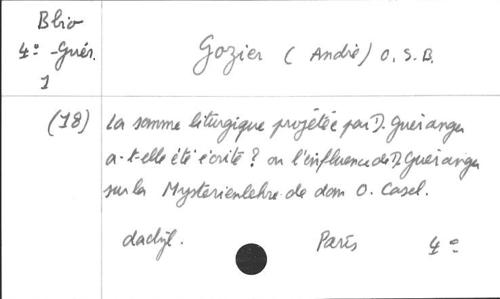 Bbio
4° - Guér.
1
Gozier (André) O. S. B.
(18) La somme liturgique projétée par D. Guéranger
a-t-elle été écrite ? ou l'influence de D. Guéranger
sur la Mysterienlehre de dom O. Casel.
dactyl. Paris 4°